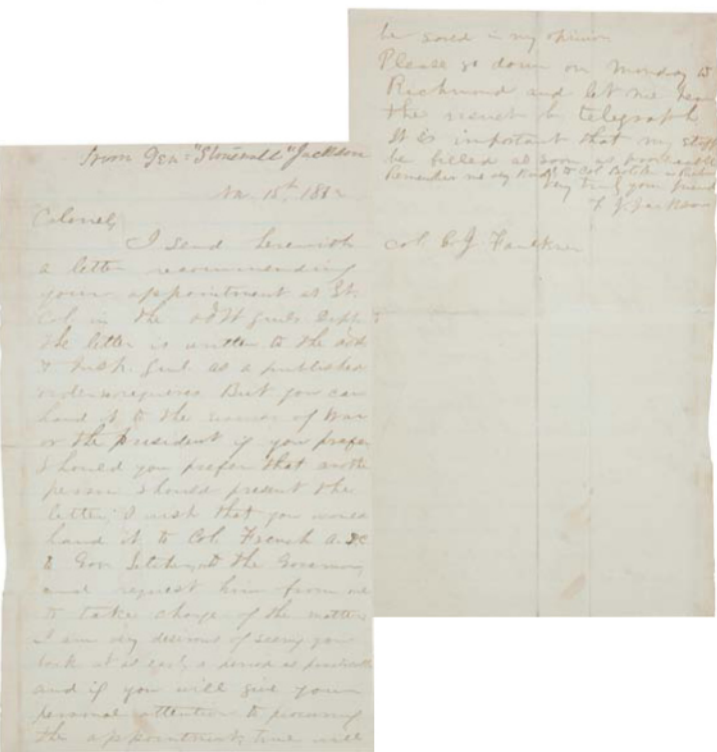 From Gen: "Stonewall" Jackson
Nov. 15th, 1862
Colonel,
I send herewith
a letter recommending
your appointment as Lt.
Col. in the Adjt Genls Dept.
The letter is written to the Adjt
& Insp. Genl. as a published
order requires But you can
hand it to the of War
or the President if you prefer
Should you prefer that another
person should present the
letter, I wish that you would
hand it to Col. French A.D.C
to Gov. Letcher, the Governor
and request him from me
to take charge of the matter
I am very desirous of seeing you
back at as early a period as practicable
and if you will give your
personal attention to procuring
the appointment, time will
be saved in my opinion
Please go down on Monday to
Richmond and let me hear
the result by telegraph
It is important that my staff
be filled as soon as practicable
Remember me very kindly to Col.
Very truly your friend
T. J. Jackson
Col. C. J. Faulkner